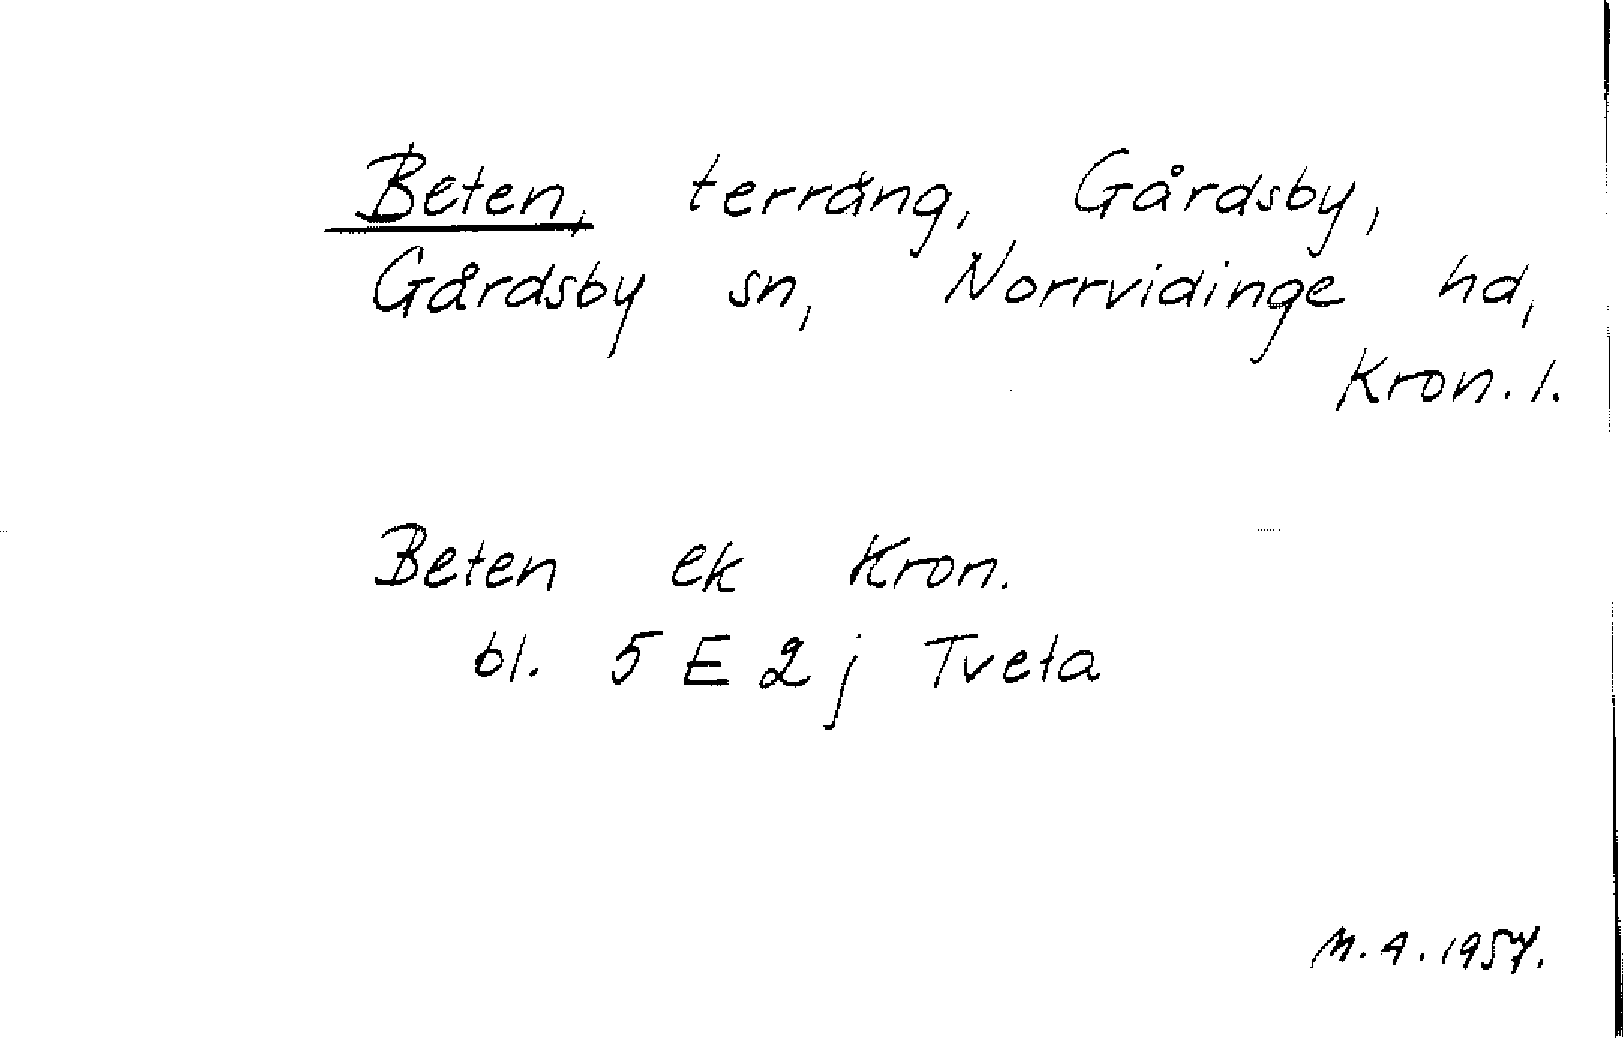 Beten, terräng, Gårdsby,
Gårdsby sn, Norrvidinge hd,
Kron. l.
Beten ek Kron.
bl. 5 E 2 j Tveta
M. A. 1957.